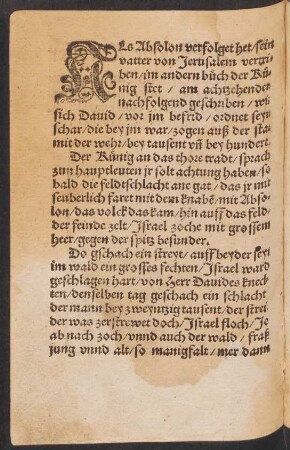 ALs Absolon verfolget het/sein
vatter von Jerusalem vertri
ben/im andern bůch der Kü
nig stet/am achtzehenden
nachfolgend geschriben/wie
sich Dauid/vor im befrid/ordnet seyn
schar/die bey im war/zogen auß der stat
mit der wehr/bey tausent vñ bey hundert.
Der Künig an das thore tradt/sprach
zun hauptleuten jr solt achtung haben/so
bald die feldtschlacht ane gat/das jr mir
seuberlich faret mit dem knabẽ/mit Abso-
lon/das volck das kam/hin auff das feld/
der feinde zelt/Israel zoche mit grossem
heer/gegen der spitz besunder.
Do gschach ein streyt/auff beyder seyt
im wald ein grosses fechten/Israel ward
geschlagen hart/von Herr Dauides knech
ten/denselben tag geschach ein schlacht
der mann bey zweyntzig tausent/der strei
der was zerstrewet doch/Israel floch/Jo
ab nach zoch/vnnd auch der wald/fraß
jung vnnd alt/so manigfalt/mer dann